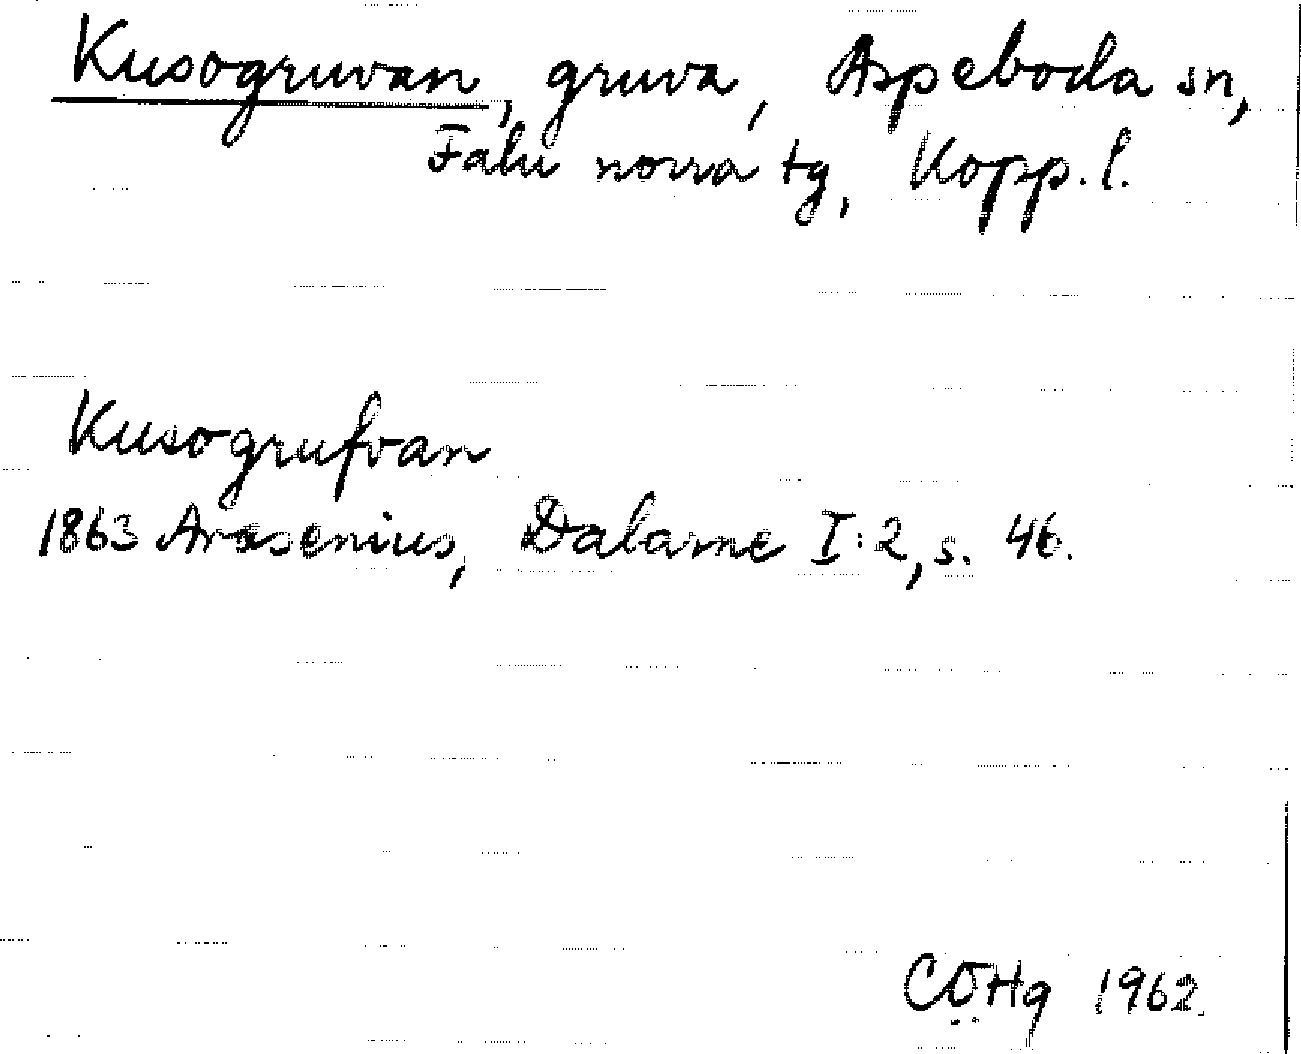 Kusogruvan, gruva, Aspeboda sn,
Falu norra tg, Kopp. l.
Kusogrufvan
1863 Arosenius, Dalarne I:2, s. 46.
CÖHg 1962.